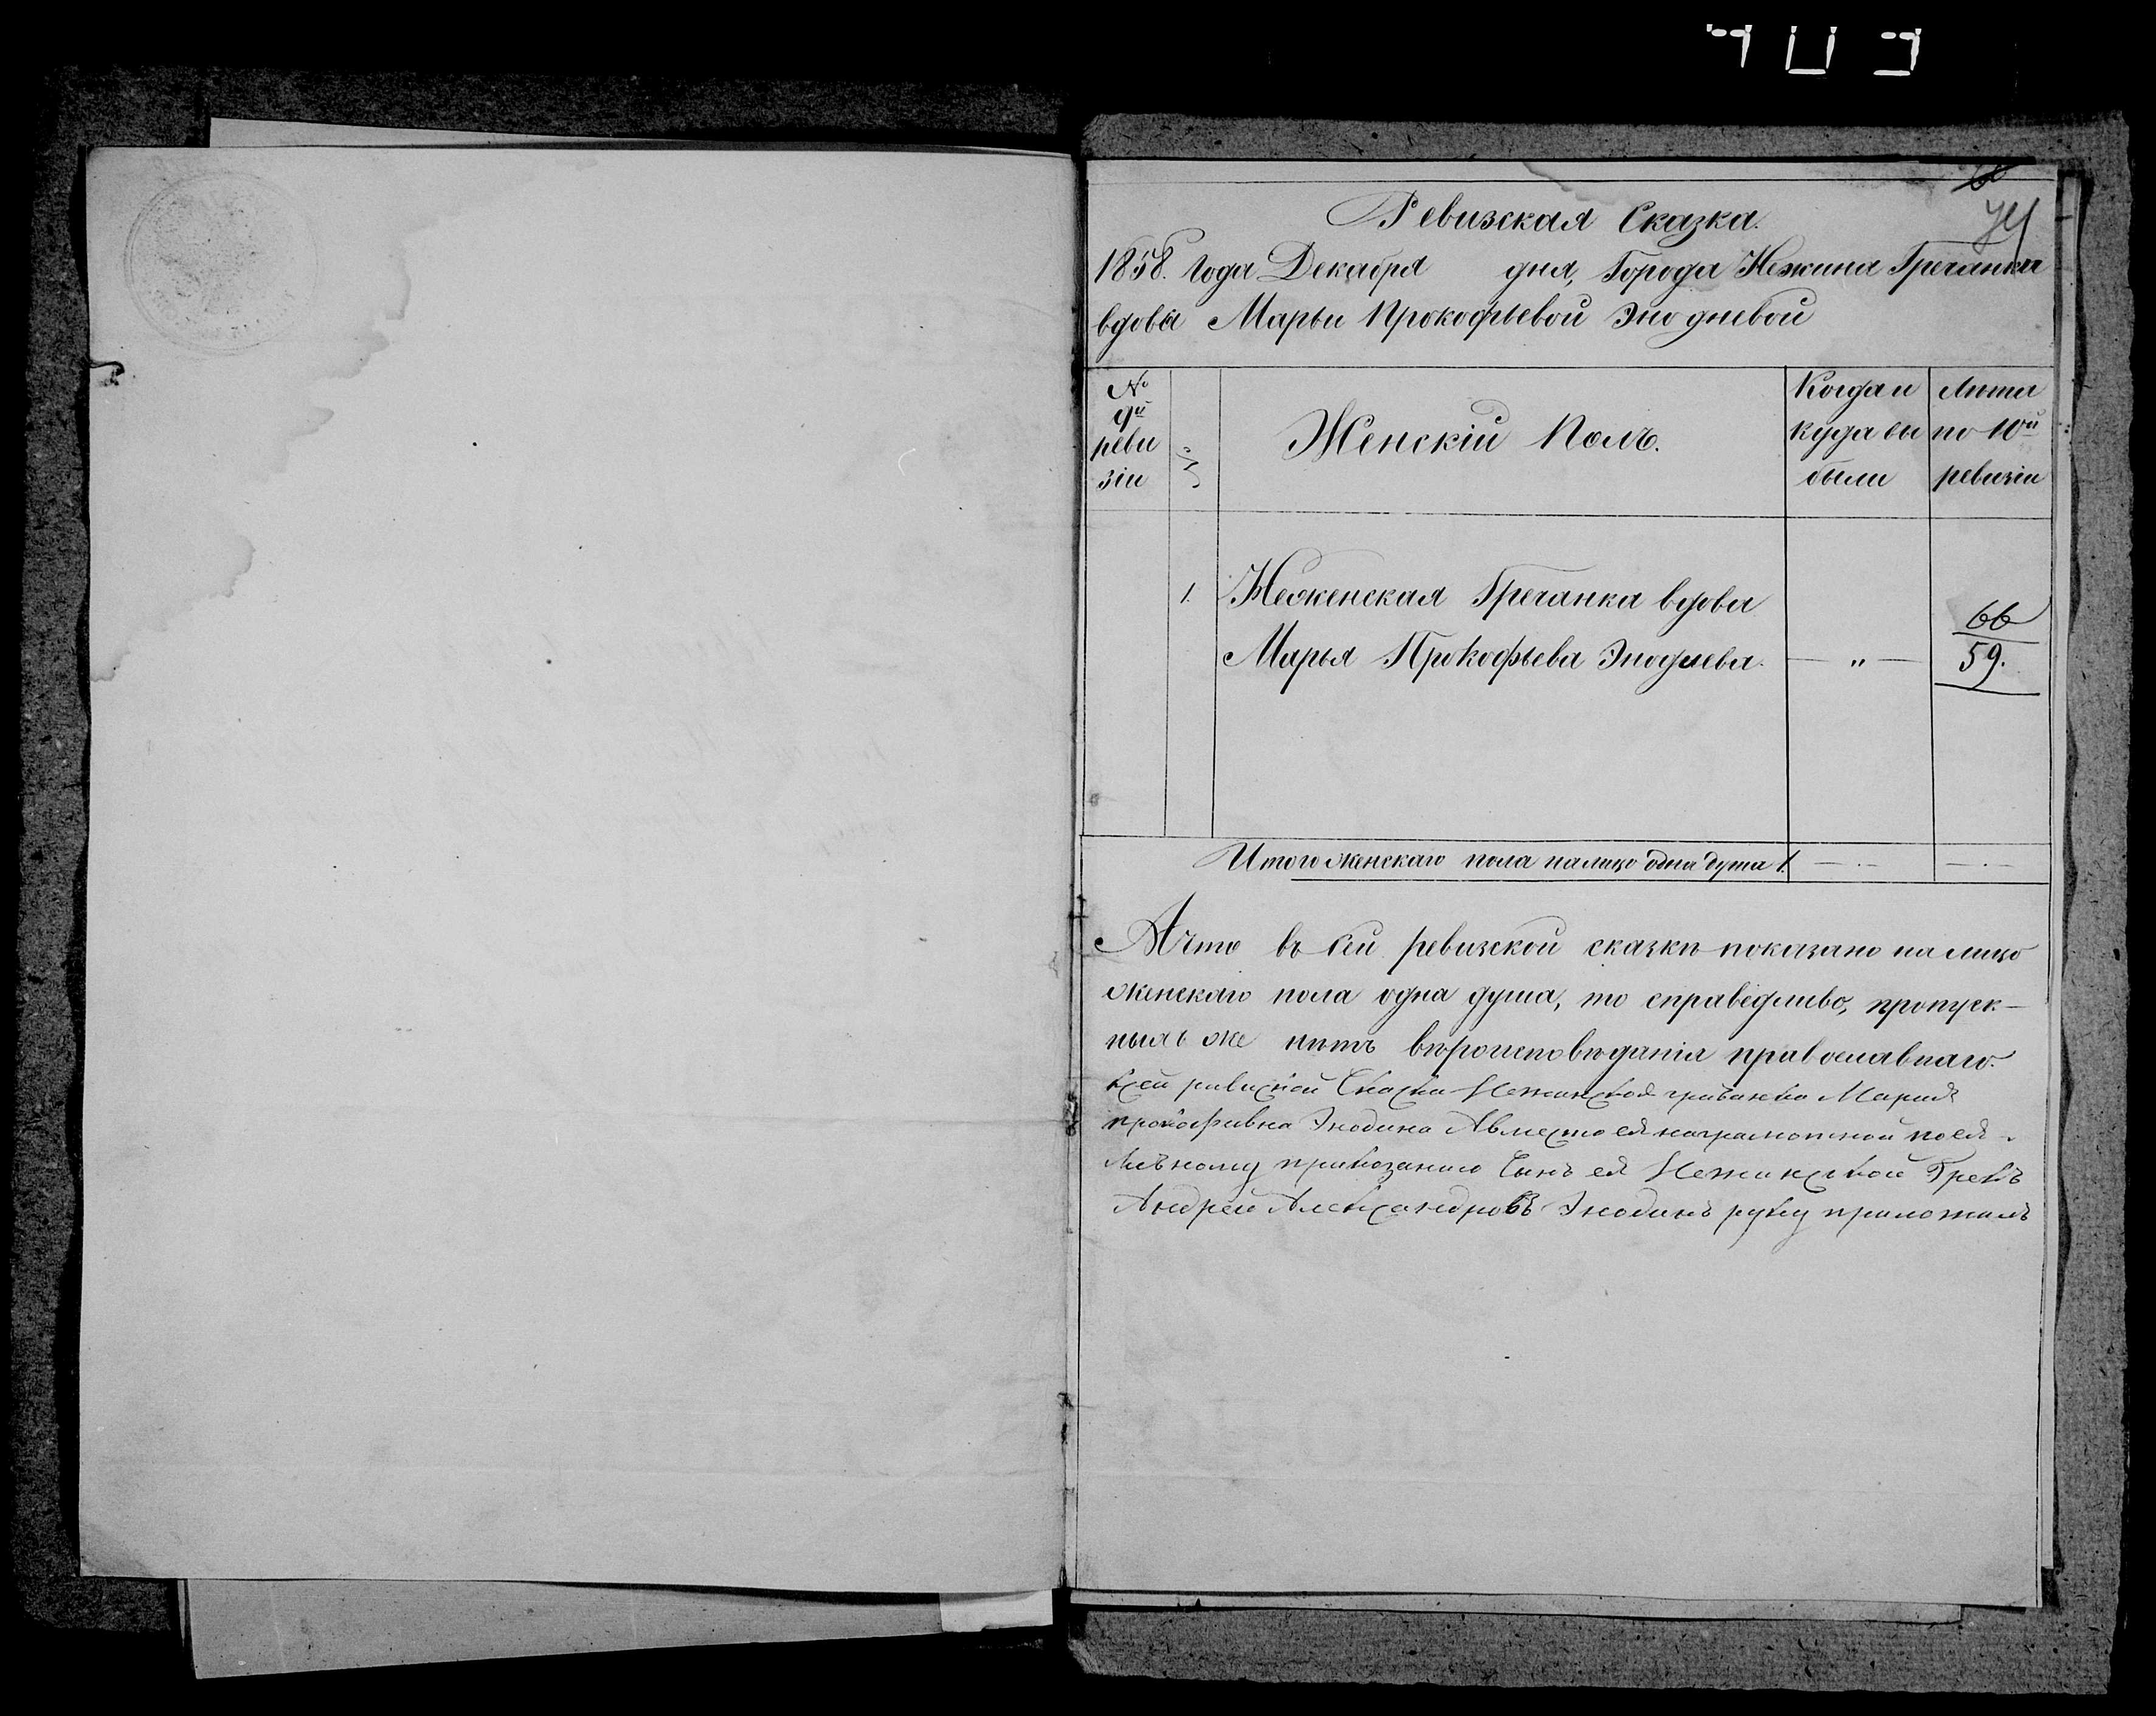 74
Ревизская Сказка.
1858. Года Декабря дня, Города Нежина Гречанки
вдовы Марьи Прокофьевой Энодиевой
№ 9й ревизіи
№
Женскій Полъ.
Когда и куда выбыли
Лѣта по 10й ревизіи
1. Неженская Гречанка вдова
Марья Прокофьева Энодиева. — " — 66
59.
Итого женскаго пола налицо одна душа 1. — · — — · —
А что въ сей ревизской сказкѣ показано на лицо
женскаго пола одна душа, то справедливо, пропуск-
ныхъ же нѣтъ вѣроисповѣданія православнаго.
Ксей ревиской Скаски Нежинская гречанка Мария
прокофивна Энодина Авместо ея награмотной поея
личному приказанию Сынъ ея Нежинской Грекъ
Андрей Александровъ Энодинъ руку приложилъ